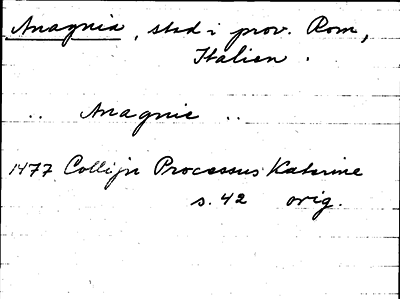 Anagnia, stad i prov. Rom,
Italien.
.. Anagnie ..
1477 Collijn Processus Katerine
s. 42 orig.